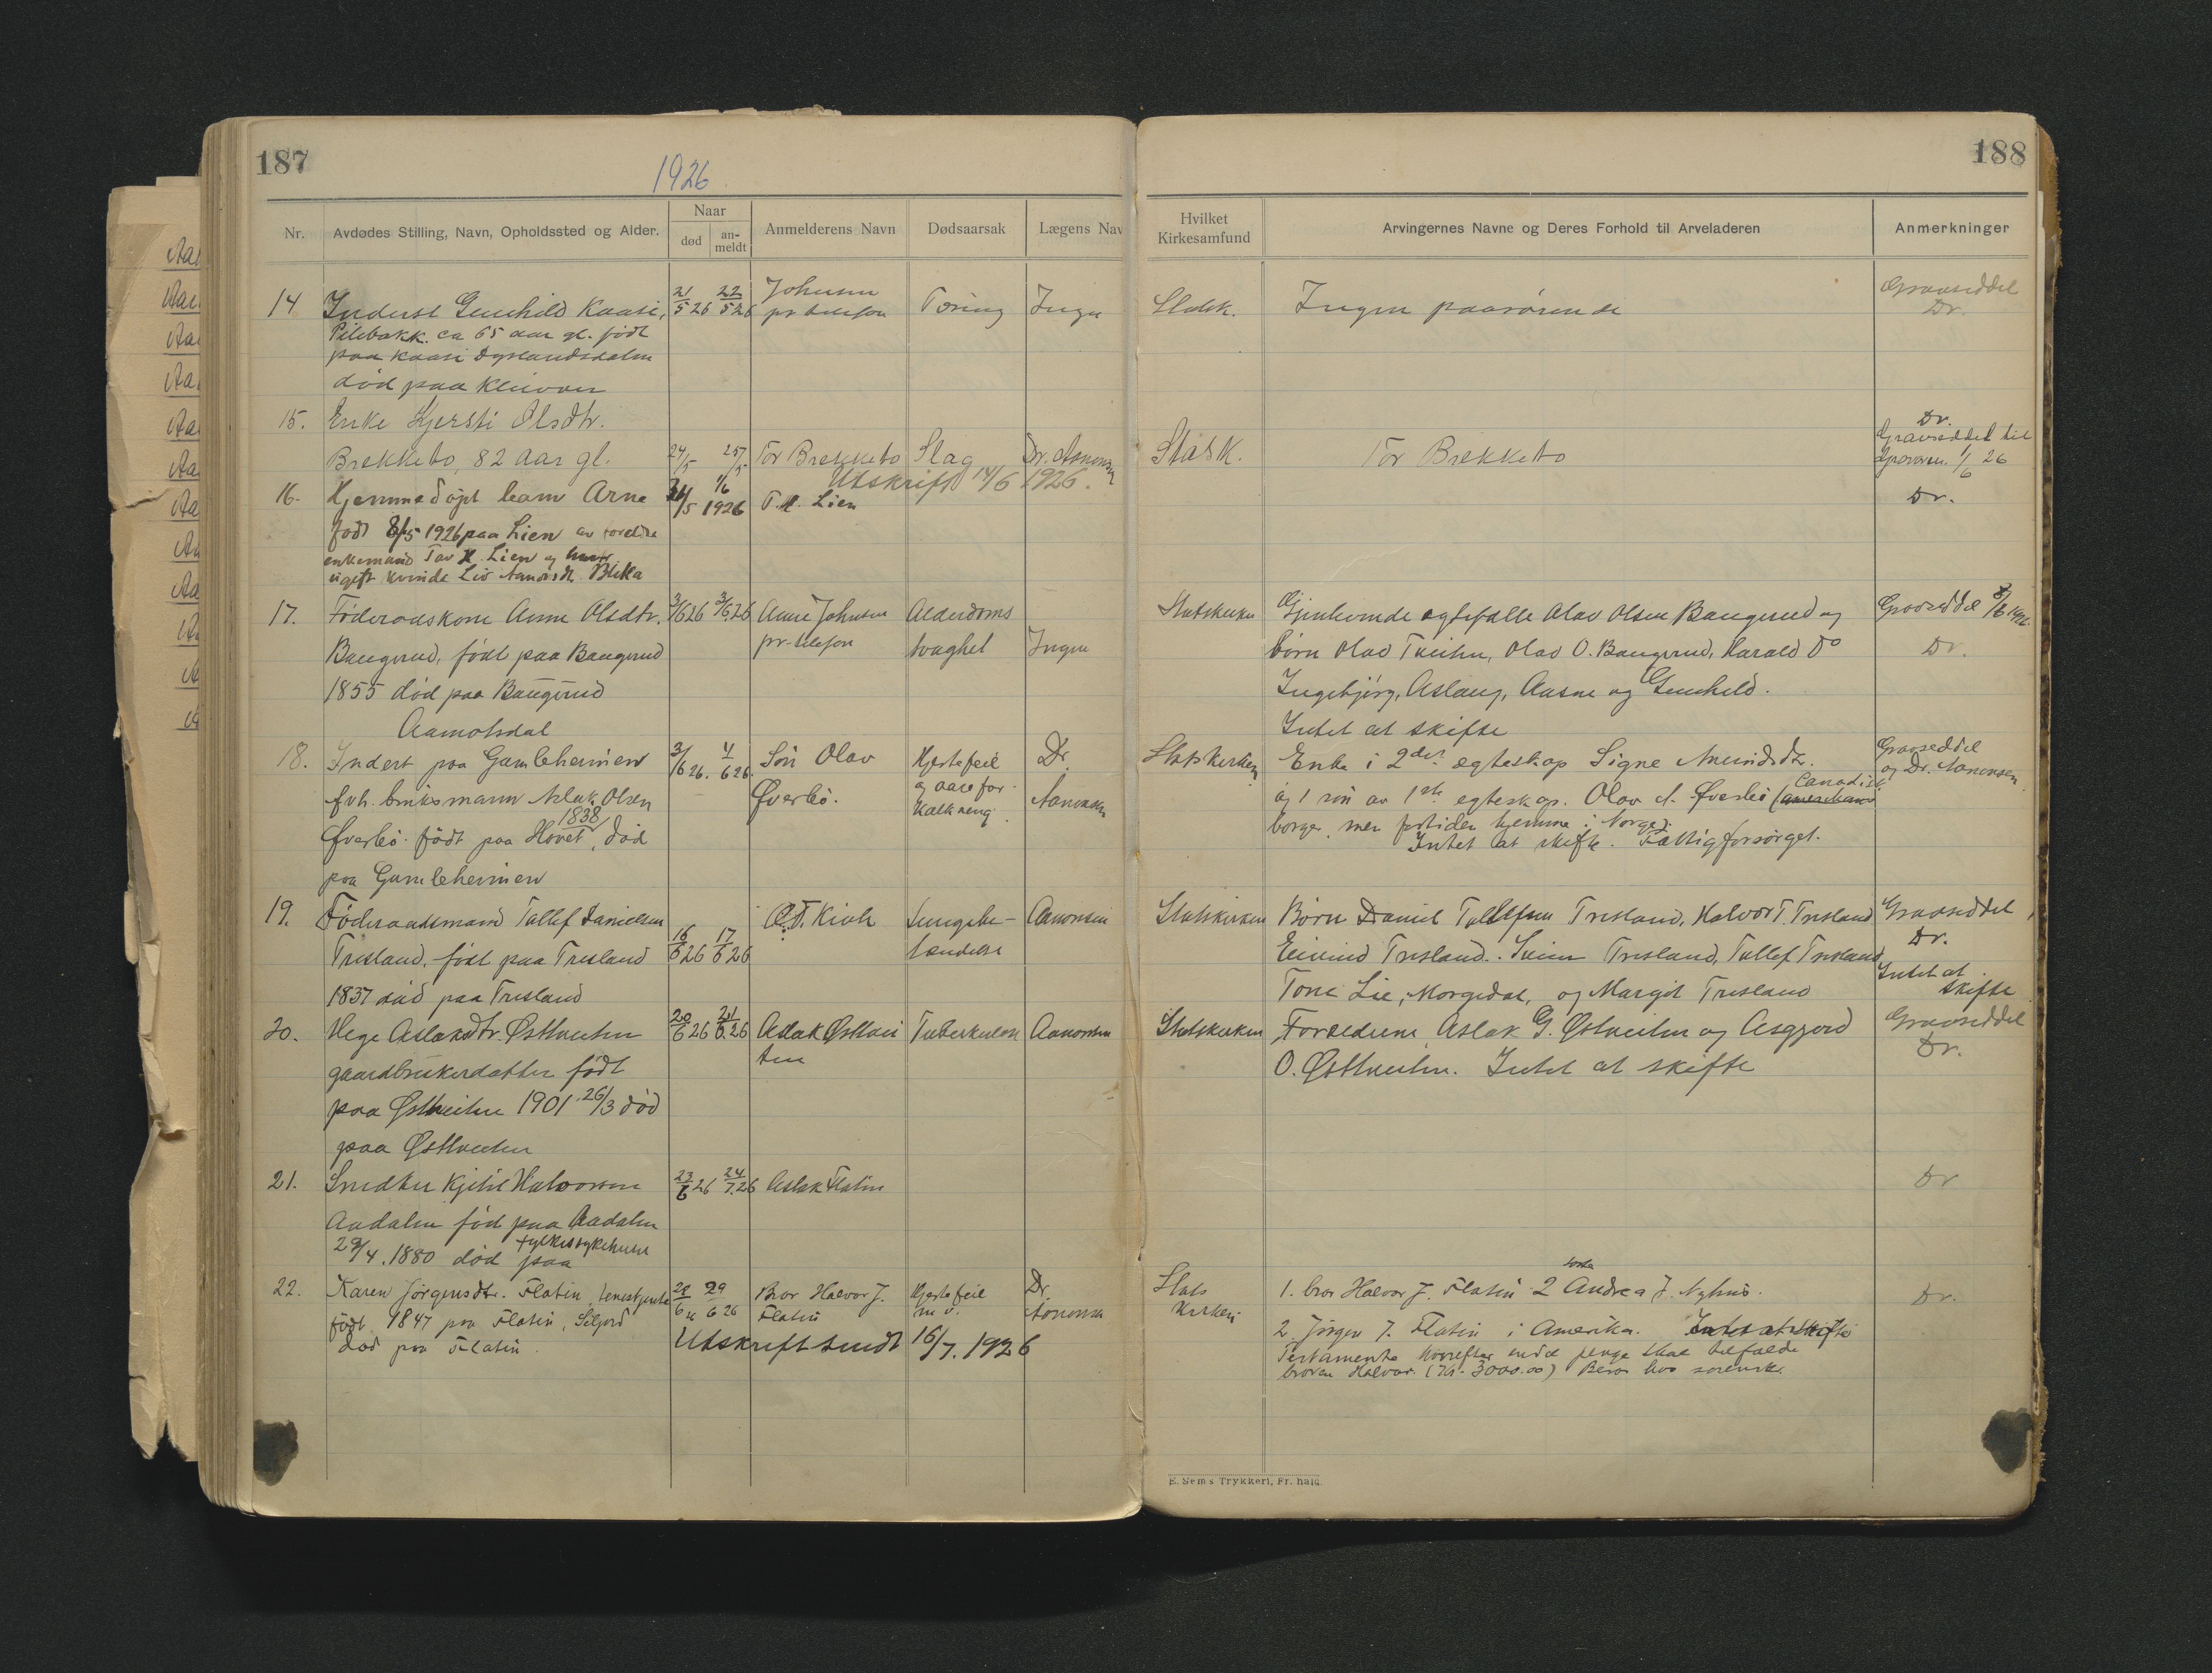 187
1926
188
Nr.
Avdødes Stilling, Navn, Opholdssted og Alder.
Naar
død
an-
meldt
Anmelderens Navn
Dødsaarsak
Lægens Nav
Hvilket
Kirkesamfund
Arvingernes Navne og Deres Forhold til Arveladeren
Anmerkninger
14 Inderst Gunhild Kaasi, 21/5 26 22/5 26 Johnsen Tæring Ingen Statsk. Ingen paarørende Gravseddel
Pilebakk. ca 65 aar gl. født pr telefon Dr.
paa Kaasi
død paa Kleivan
15. Enke Kjersti Olsdtr. Dr.
Brekketo, 82 aar gl. 24/5 25/5 Tor Brekketo Slag Dr. Aanonsen Statsk. Tor Brekketo Gravseddel til
1/6 26
Utskrift 14/6 1926.
16. Hjemmedøpt barn Arne 31/5 1/6 1926 T. H. Lien Dr.
født 8/5 1926 paa Lien av foreldre
enkemand Tov H. Lien og
ugift kvinde Liv
17. Føderaadskone Anne Olsdtr. 3/6 26 3/6.26 Anne Johnsen Alderdoms Statskirken Gjenlevende egtefælle Olav Olsen Baugerud og Gravseddel 8/6 1926
Baugerud, født paa Baugerud pr. telefon svaghet Ingen børn Olav Tveiten, Olav O. Baugerud, Harald Do Dr.
1855 død paa Baugerud Ingebjørg, Aslaug, Aasne og Gunhild.
Aamotsdal Intet at skifte
18. Inderst paa Gamleheimen 3/6 26. 4/6 26. Søn Olav Hjertefeil Dr. Statskirken Enke i 2det egteskap Signe Amundsdr. Gravseddel
fvh. bruksmann Aslak Olsen Øverbø. og aarefor- Aanonsen og 1 søn av 1ste egteskap. Olav A. Øverbø (amerikansk Canadisk og Dr. Aanonsen
1838 kalkning borger, men fortiden hjemme i Norge).
Øverbø. født paa Hovet, død Intet at skifte. Fattigforsørget.
paa Gamleheimen
19. Føderaadsmand Tallef Danielsen O.T. Kivle Lungebe- Aanonsen Statskirken Børn Daniel Tallefsen Tresland, Halvor T. Tresland Gravseddel
Tresland, født paa Tresland 16/6 26 17/6 26 tændelse Eivind Tresland. Svein Tresland, Tallef Tresland Dr.
1837 død paa Tresland Tone Lie, Morgedal, og Margit Tresland Intet at
skifte
20. Hege Aslaksdtr. Østtveiten 20/6 26 21/6.26 Aslak Østtvei Tuberkulose Aanonsen Statskirken Foreldrene Aslak G. Østtveiten og Asgjerd Gravseddel
gaardbrukerdatter født ten O. Østtveiten. Intet at skifte Dr.
paa Østtveiten 1901 26/3 død
paa Østtveiten
21. Snedker Kjetil Halvorsen 23/6 26 24/7.26 Aslak Flatin Dr
Aadalen født paa Aadalen
29/4. 1880 død paa fylkessykehuset
22. Karen Jørgensdtr. Flatin, tenestjente 28/6 26 29/6 26 Bror Halvor J. Hjertefeil Dr. Stats 1. bror Halvor J. Flatin 2 søster Andrea J. Nyhus. Dr.
født 1847 paa Flatin, Seljord Flatin m. v. Aanonsen Kirken 2. Jørgen J. Flatin i Amerika. Intet at skifte
død paa Flatin. Utskrift sendt 16/7. 1926 Testamente hvorefter endel penge skal tilfalde
broren Halvor. (Kr. 3000.00) Beror hos sorensk.
E. Sem's Trykkeri, Fr.hald.